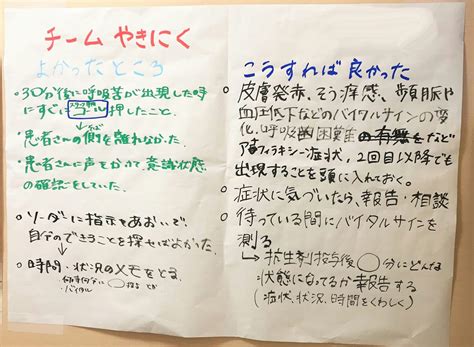 チーム やきにく
よかったところ
・30分後に呼吸苦が出現した時
にすぐにスタッフコール押したこと。
そば
・患者さんの側を離れなかった。
・患者さんに声をかけて、意識状態
の確認をしていた。
○リーダーに指示をあおいで、
自分のできることを探せばよかった。
○時間・状況のメモをとる。
・バイタル
こうすれば良かった
○皮膚発赤、そう痒感、頻脈や
血圧低下などのバイタルサインの変
化、呼吸困難の有無など
アナフィラキシー症状、2回目以降でも
出現することを頭に入れておく。
○症状に気づいたら、報告・相談
○待っている間にバイタルサインを
測る
→抗生剤投与後○分にどんな
状態になってるか報告する
(症状、状況、時間をくわしく)